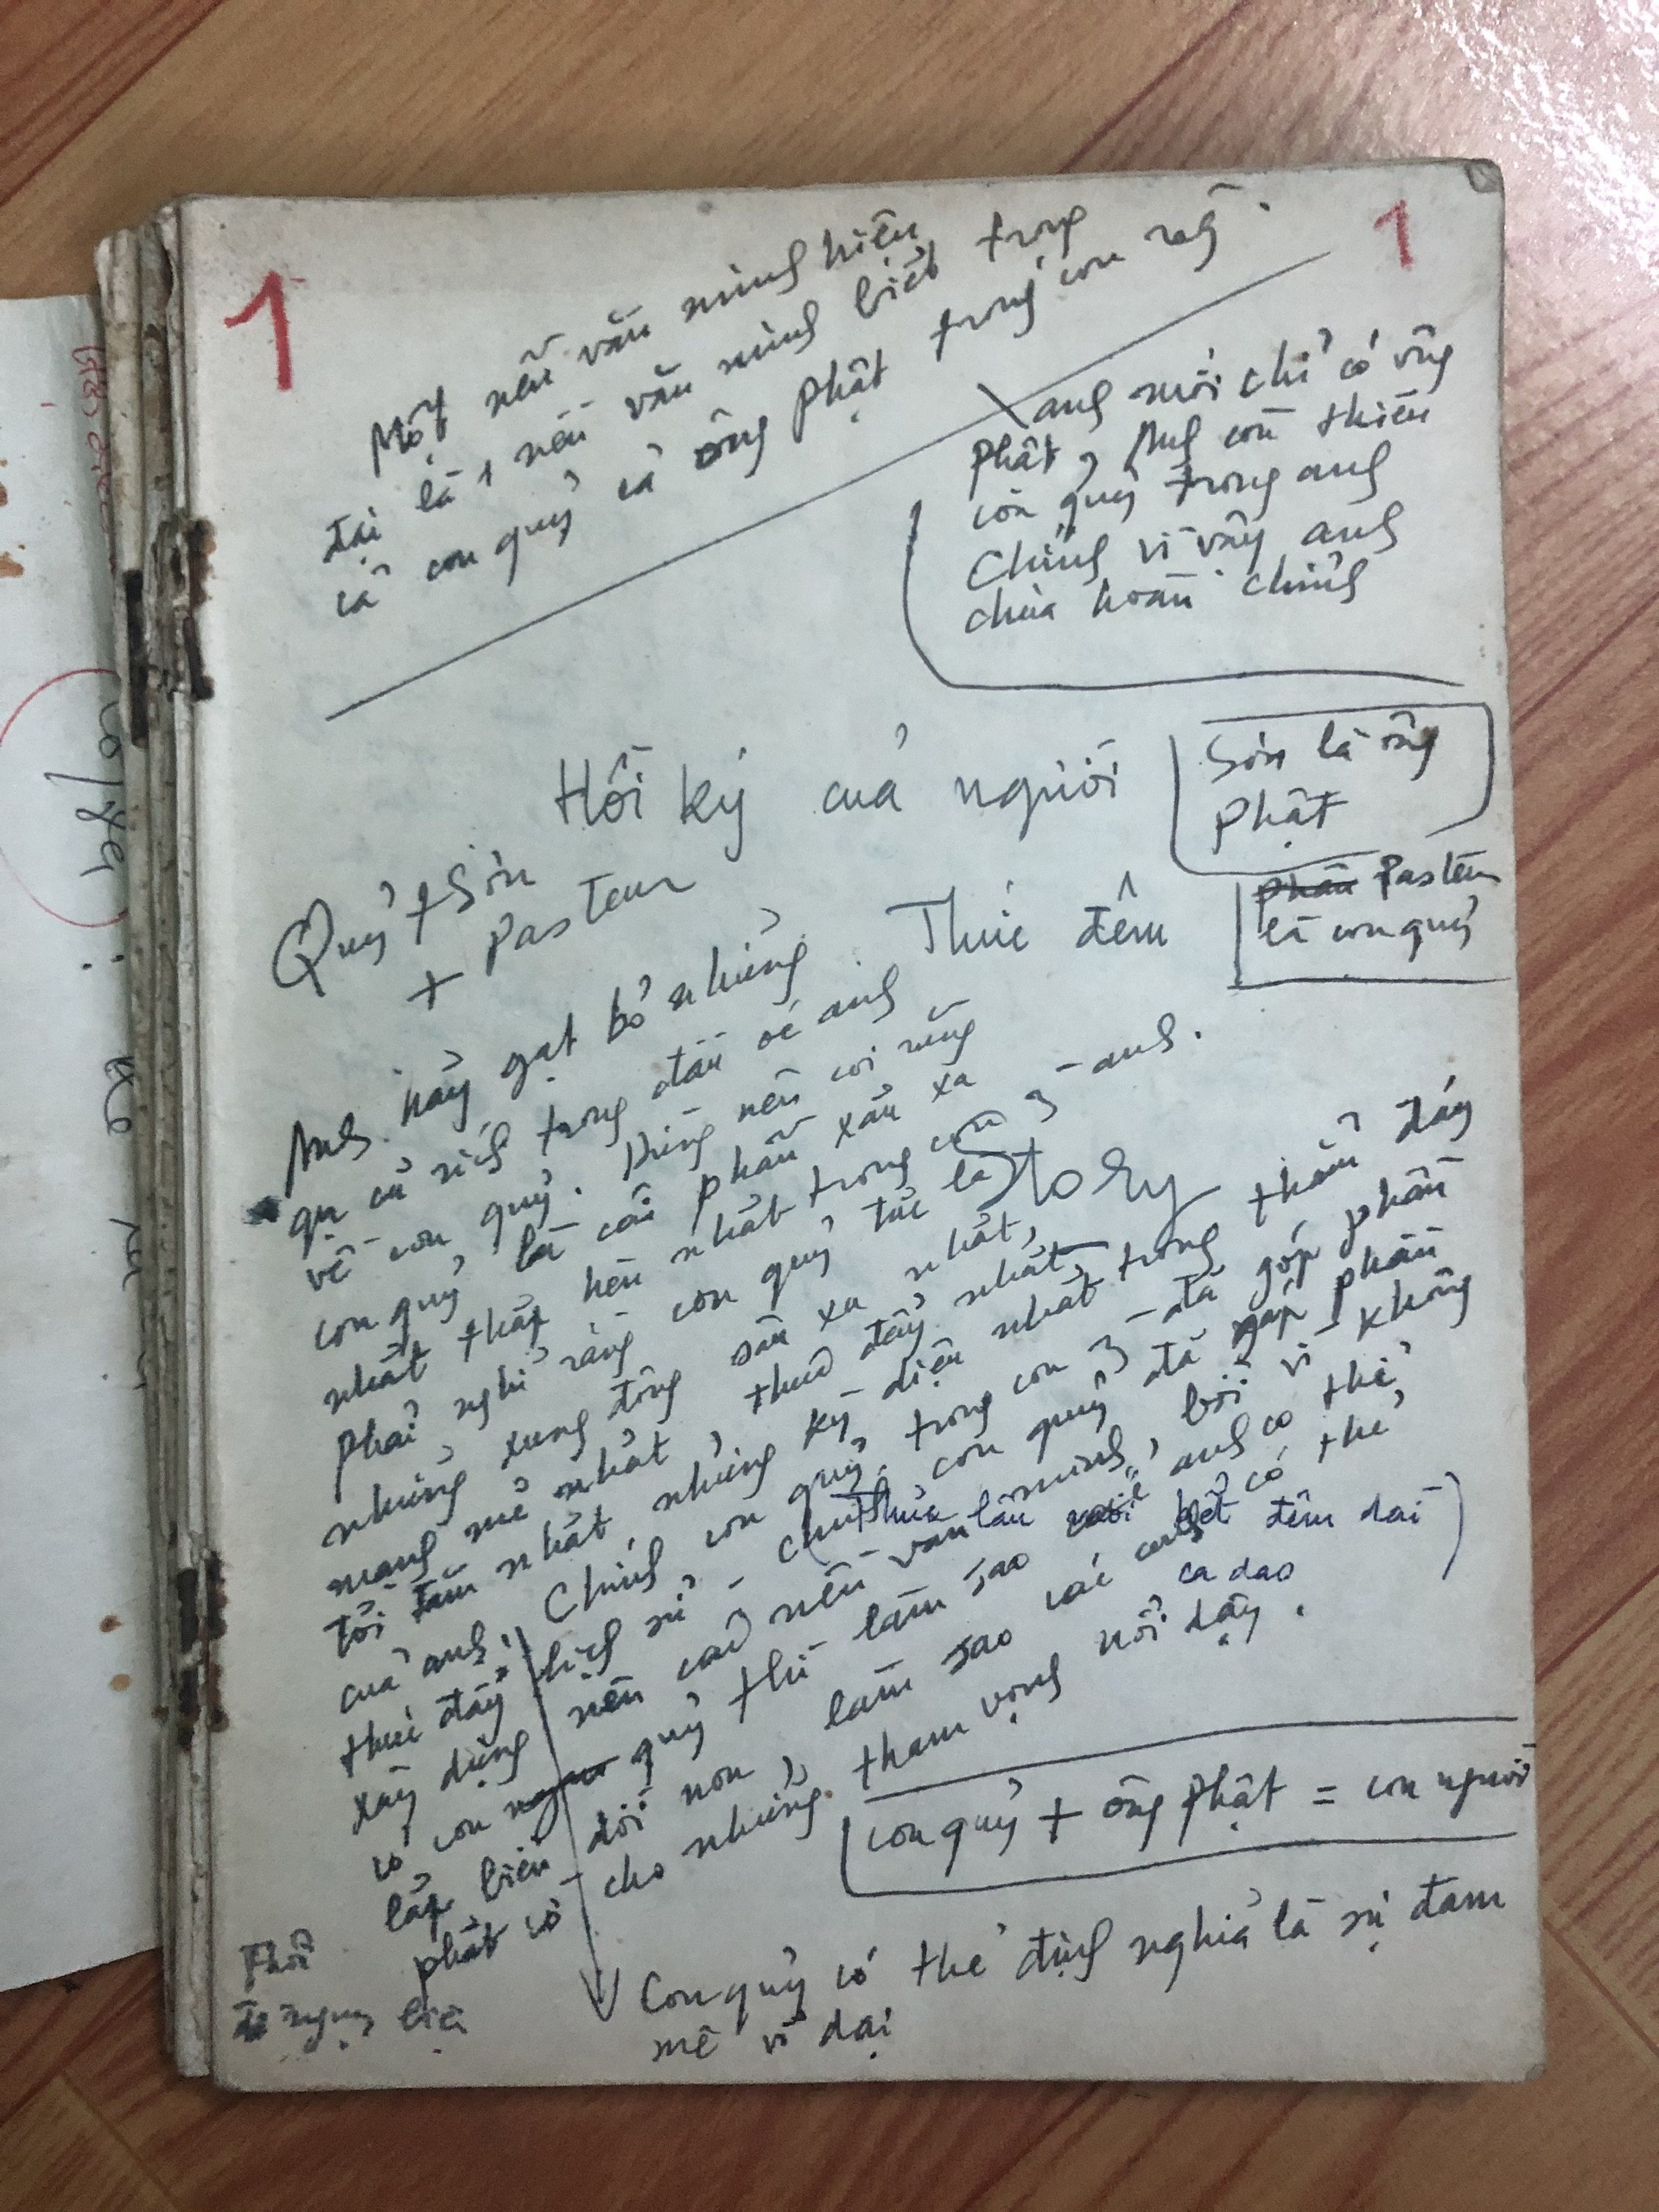 1
1
Một nền văn minh hiện
đại là 1 nền văn minh biết trong
cả con quỷ và ông phật trong con
anh mới chỉ có ông
phật, Anh còn thiếu
con quỷ trong anh
Chính vì vậy anh
chưa hoàn chỉnh
Hồi ký của người
Sơn là ông
phật
Quỷ + Sơn
+ Pasteur
Thức đêm
Pasteur
là con quỷ
Anh hãy gạt bỏ những
cũ rích trong đầu óc anh
về con quỷ. Đừng nên coi rằng
con quỷ là cái phần xấu xa
nhất thấp hèn nhất trong con anh.
Phải nghĩ rằng con quỷ tức là
Story
những xung động sâu xa nhất,
mạnh mẽ nhất, thúc đẩy nhất,
tối tăm nhất những kỳ diệu nhất trong thẳm đáy
của anh. Chính con quỷ trong con đã góp phần
thúc đẩy lịch sử, chính con quỷ đã góp phần
xây dựng nên các nền văn minh, bởi vì không
có con quỷ thì làm sao anh có thể
lấp biển dời non, làm sao các anh có thể
phất cờ cho những tham vọng nổi dậy.
(Thức lâu mới biết đêm dài)
ca dao
con quỷ + ông phật = con người
Con quỷ có thể định nghĩa là sự đam
mê vĩ đại